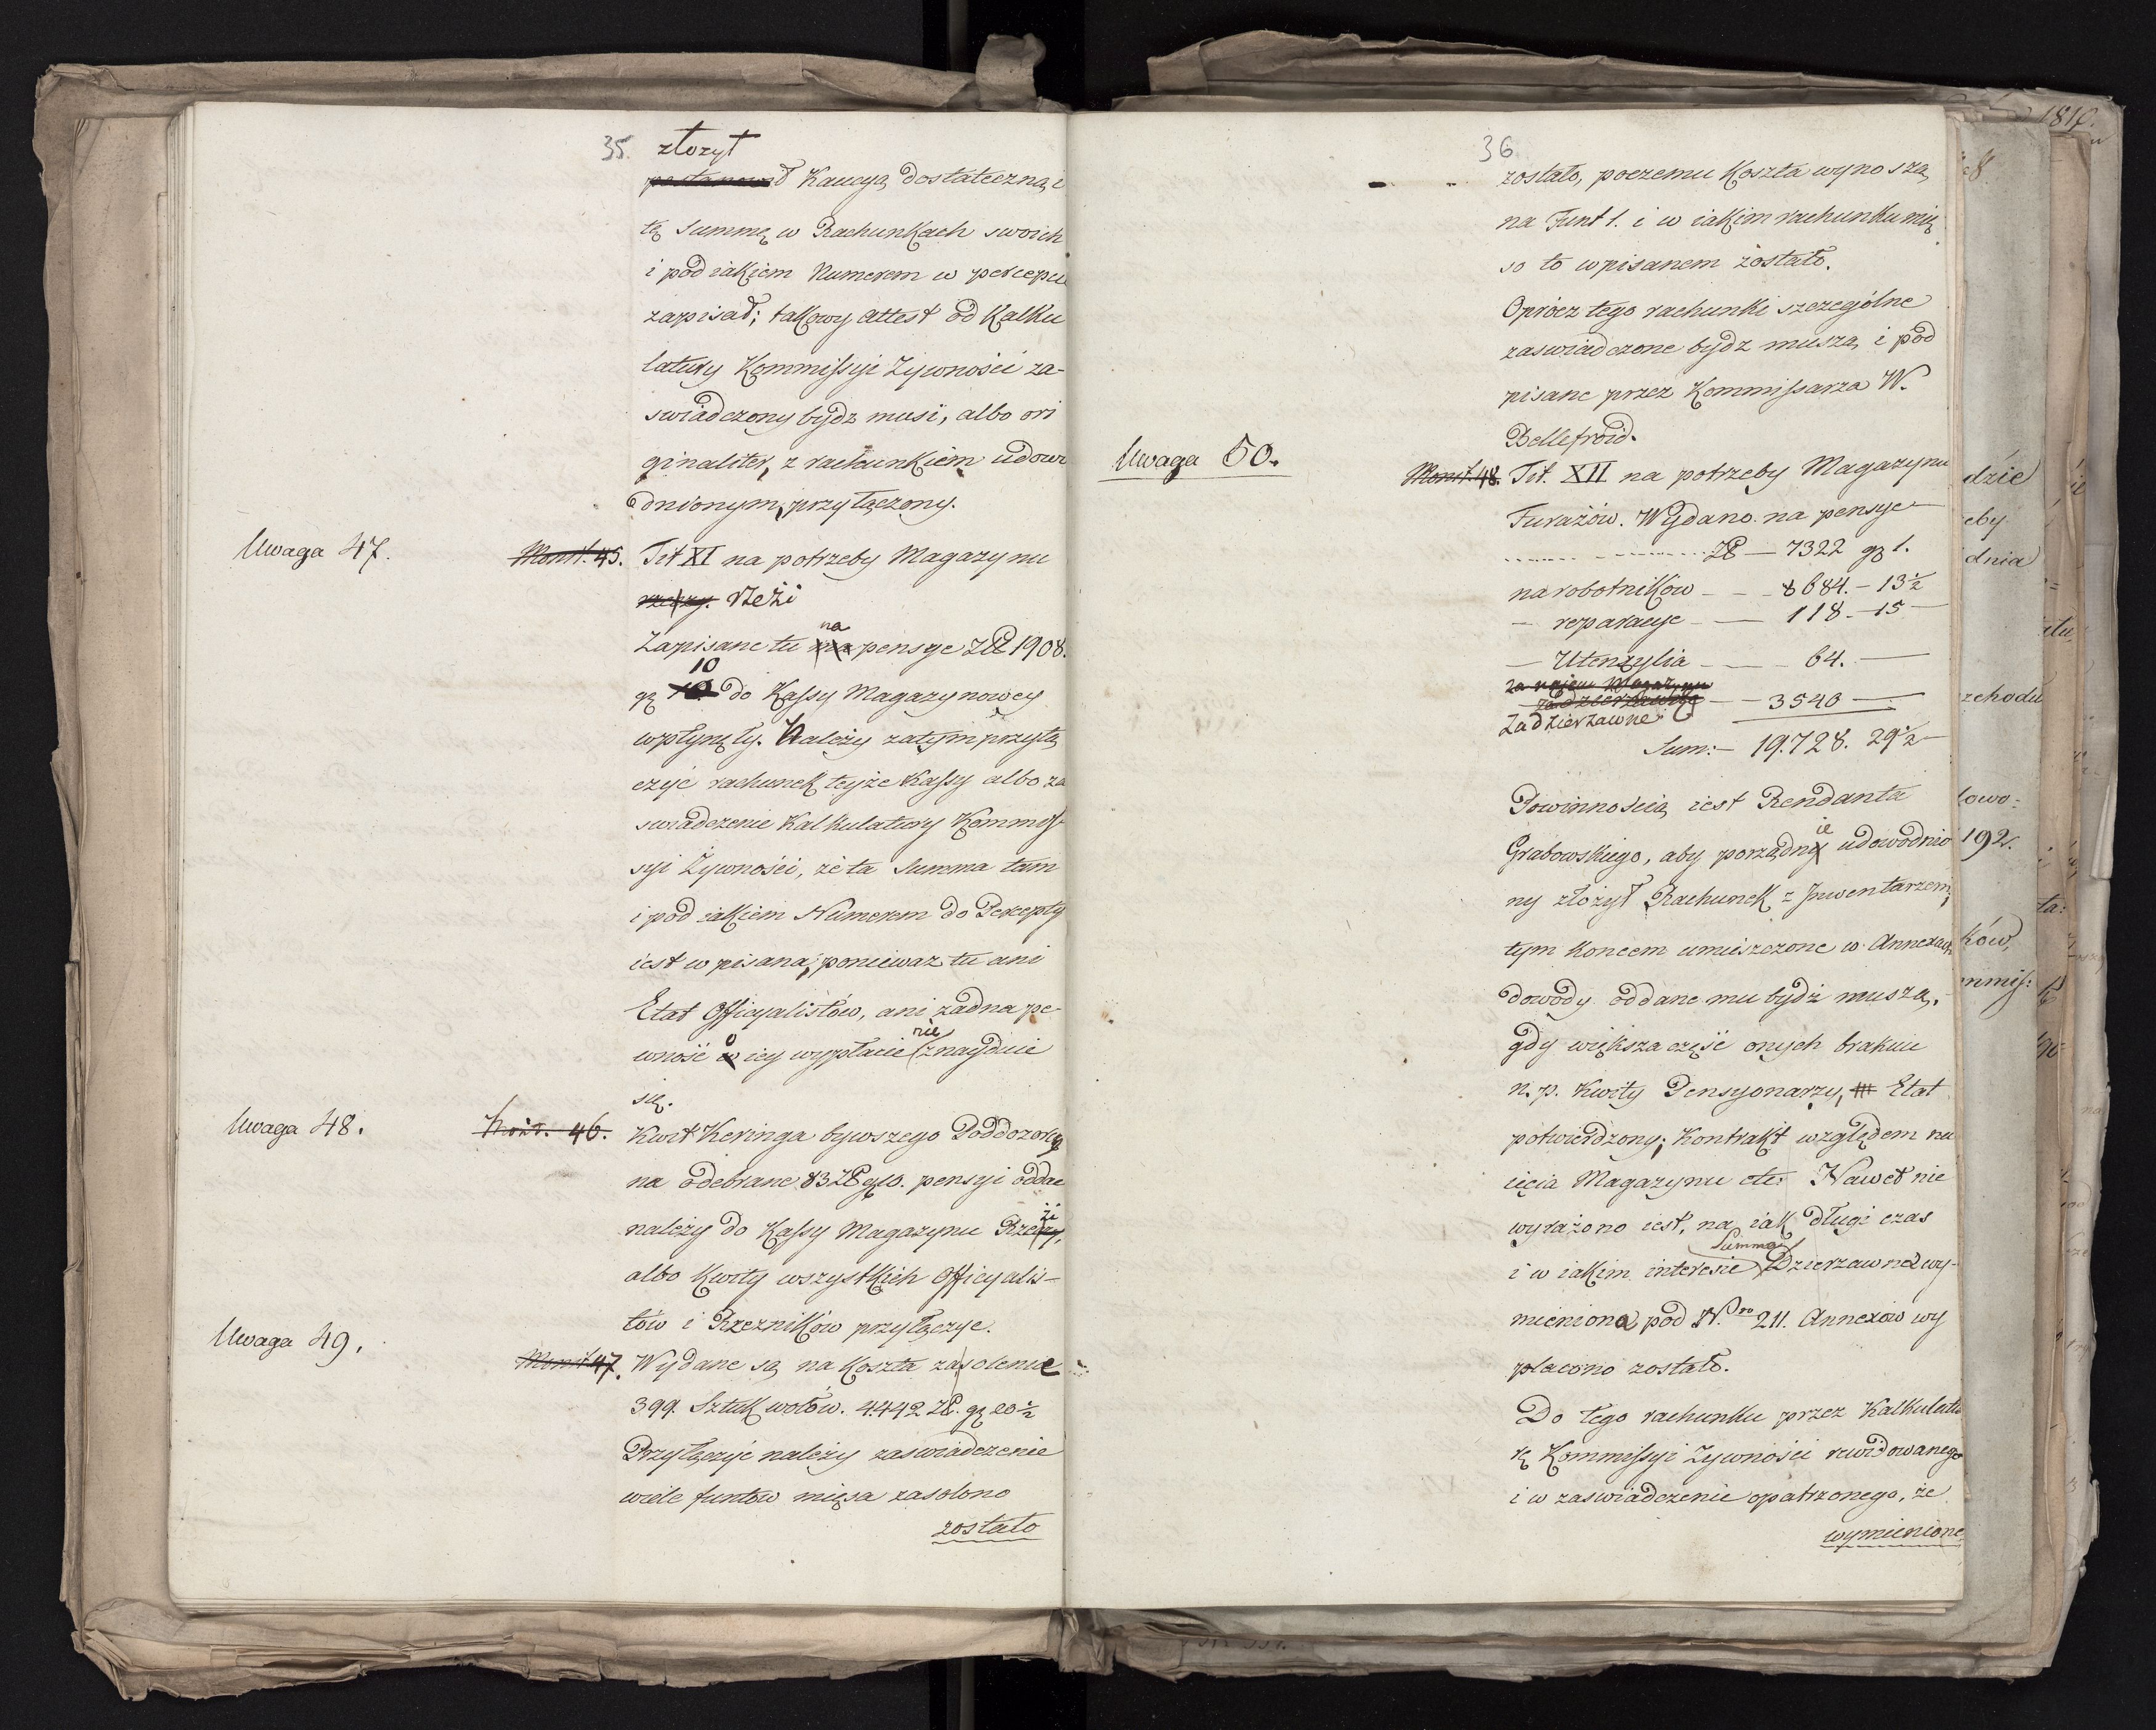 35.
złożył
postanowił Kaucyą dostateczną i
tę Summę w Rachunkach swoich
i pod iakiem Numerem w percepcie
zapisał; takowy attest od Kalku
latury Kommissyi Żywności za-
swiadczony bydz musi, albo ori
ginaliter, z rachunkiem udowo
dnionym, przyłączony.
Uwaga 47.
Monit. 45. Tit XI na potrzeby Magazynu
rzeczy. Rzeźi
Zapisane tu na pensye Zł 1908.
10
gr do Kassy Magazynowey
wpłynęły. Należy zatym przyłą
czyć rachunek teyże Kassy albo za
swiadczenie Kalkulatury Kommis
syi Żywności, że ta Summa tam
i pod iakiem Numerem do Percepty
iest wpisana; poniewaz tu ani
Etat Officyalistów, ani żadna pe-
wność o icy wypłacie nie znayduie
się.
Uwaga 48.
Monit. 46. Kwit Keringa bywszego Poddozorcy
na odebrane 83 Zł gr 10. pensyi oddać
należy do Kassy Magazynu Rzeźi,
albo Kwity wszystkich Officyalis-
tów i Rzezników przyłączyc.
Uwaga 49.
Monit 47. Wydane są na Koszta zasolenie
399. Sztuk wołów. 4442 Zł. gr 20 ½
Przyłączyć należy zaswiadczenie
wiele funtów mięsa zasolono
zostało
36
zostało, poczemu Koszta wynoszą
na Funt 1. i w iakim rachunku mię
so to wpisanem zostało.
Oprócz tego rachunki szczególne
zaswiadczone bydz muszą i pod
pisane przez Kommissarza W.
Bellefroid.
Uwaga 50.
Monit. 48. Tit. XII na potrzeby Magazynu
Furażów. Wydano na pensye
Zł — 7322 gr 1.
na robotników — — 8684. — 13½
— reparacye — — 118. — 15 —
— Utenzylia — — 64. —
za najem Magazynu
za dzierzawne — — 3540 —
Za dzierzawne
Sum: — 19.728. 29½ —
Powinnością iest Rendanta
Grabowskiego, aby porządnie udowodnio
ny złożył Rachunek z Inwentarzem,
tym Koncem umieszczone w Annexach
dowody oddane mu bydź muszą,
gdy większa część onych brakuie
n. p. Kwity Pensyonarzy, Etat
potwierdzony; Kontrakt względem na
ięcia Magazynu etc. Nawet nie
wyrażono iest, na iak długi czas
i w iakim interesie Summa Dzierzawna wy-
mieniona pod N.ro 211. Annexów wy
płacono zostało.
Do tego rachunku przez Kalkulatu
rę Kommissyi Żywności rewidowanego
i w zaswiadczenie opatrzonego, że
wymienione
1810.
dzie
eby
dnia
zchodu
łowo=
192.
ków,
mmiss: